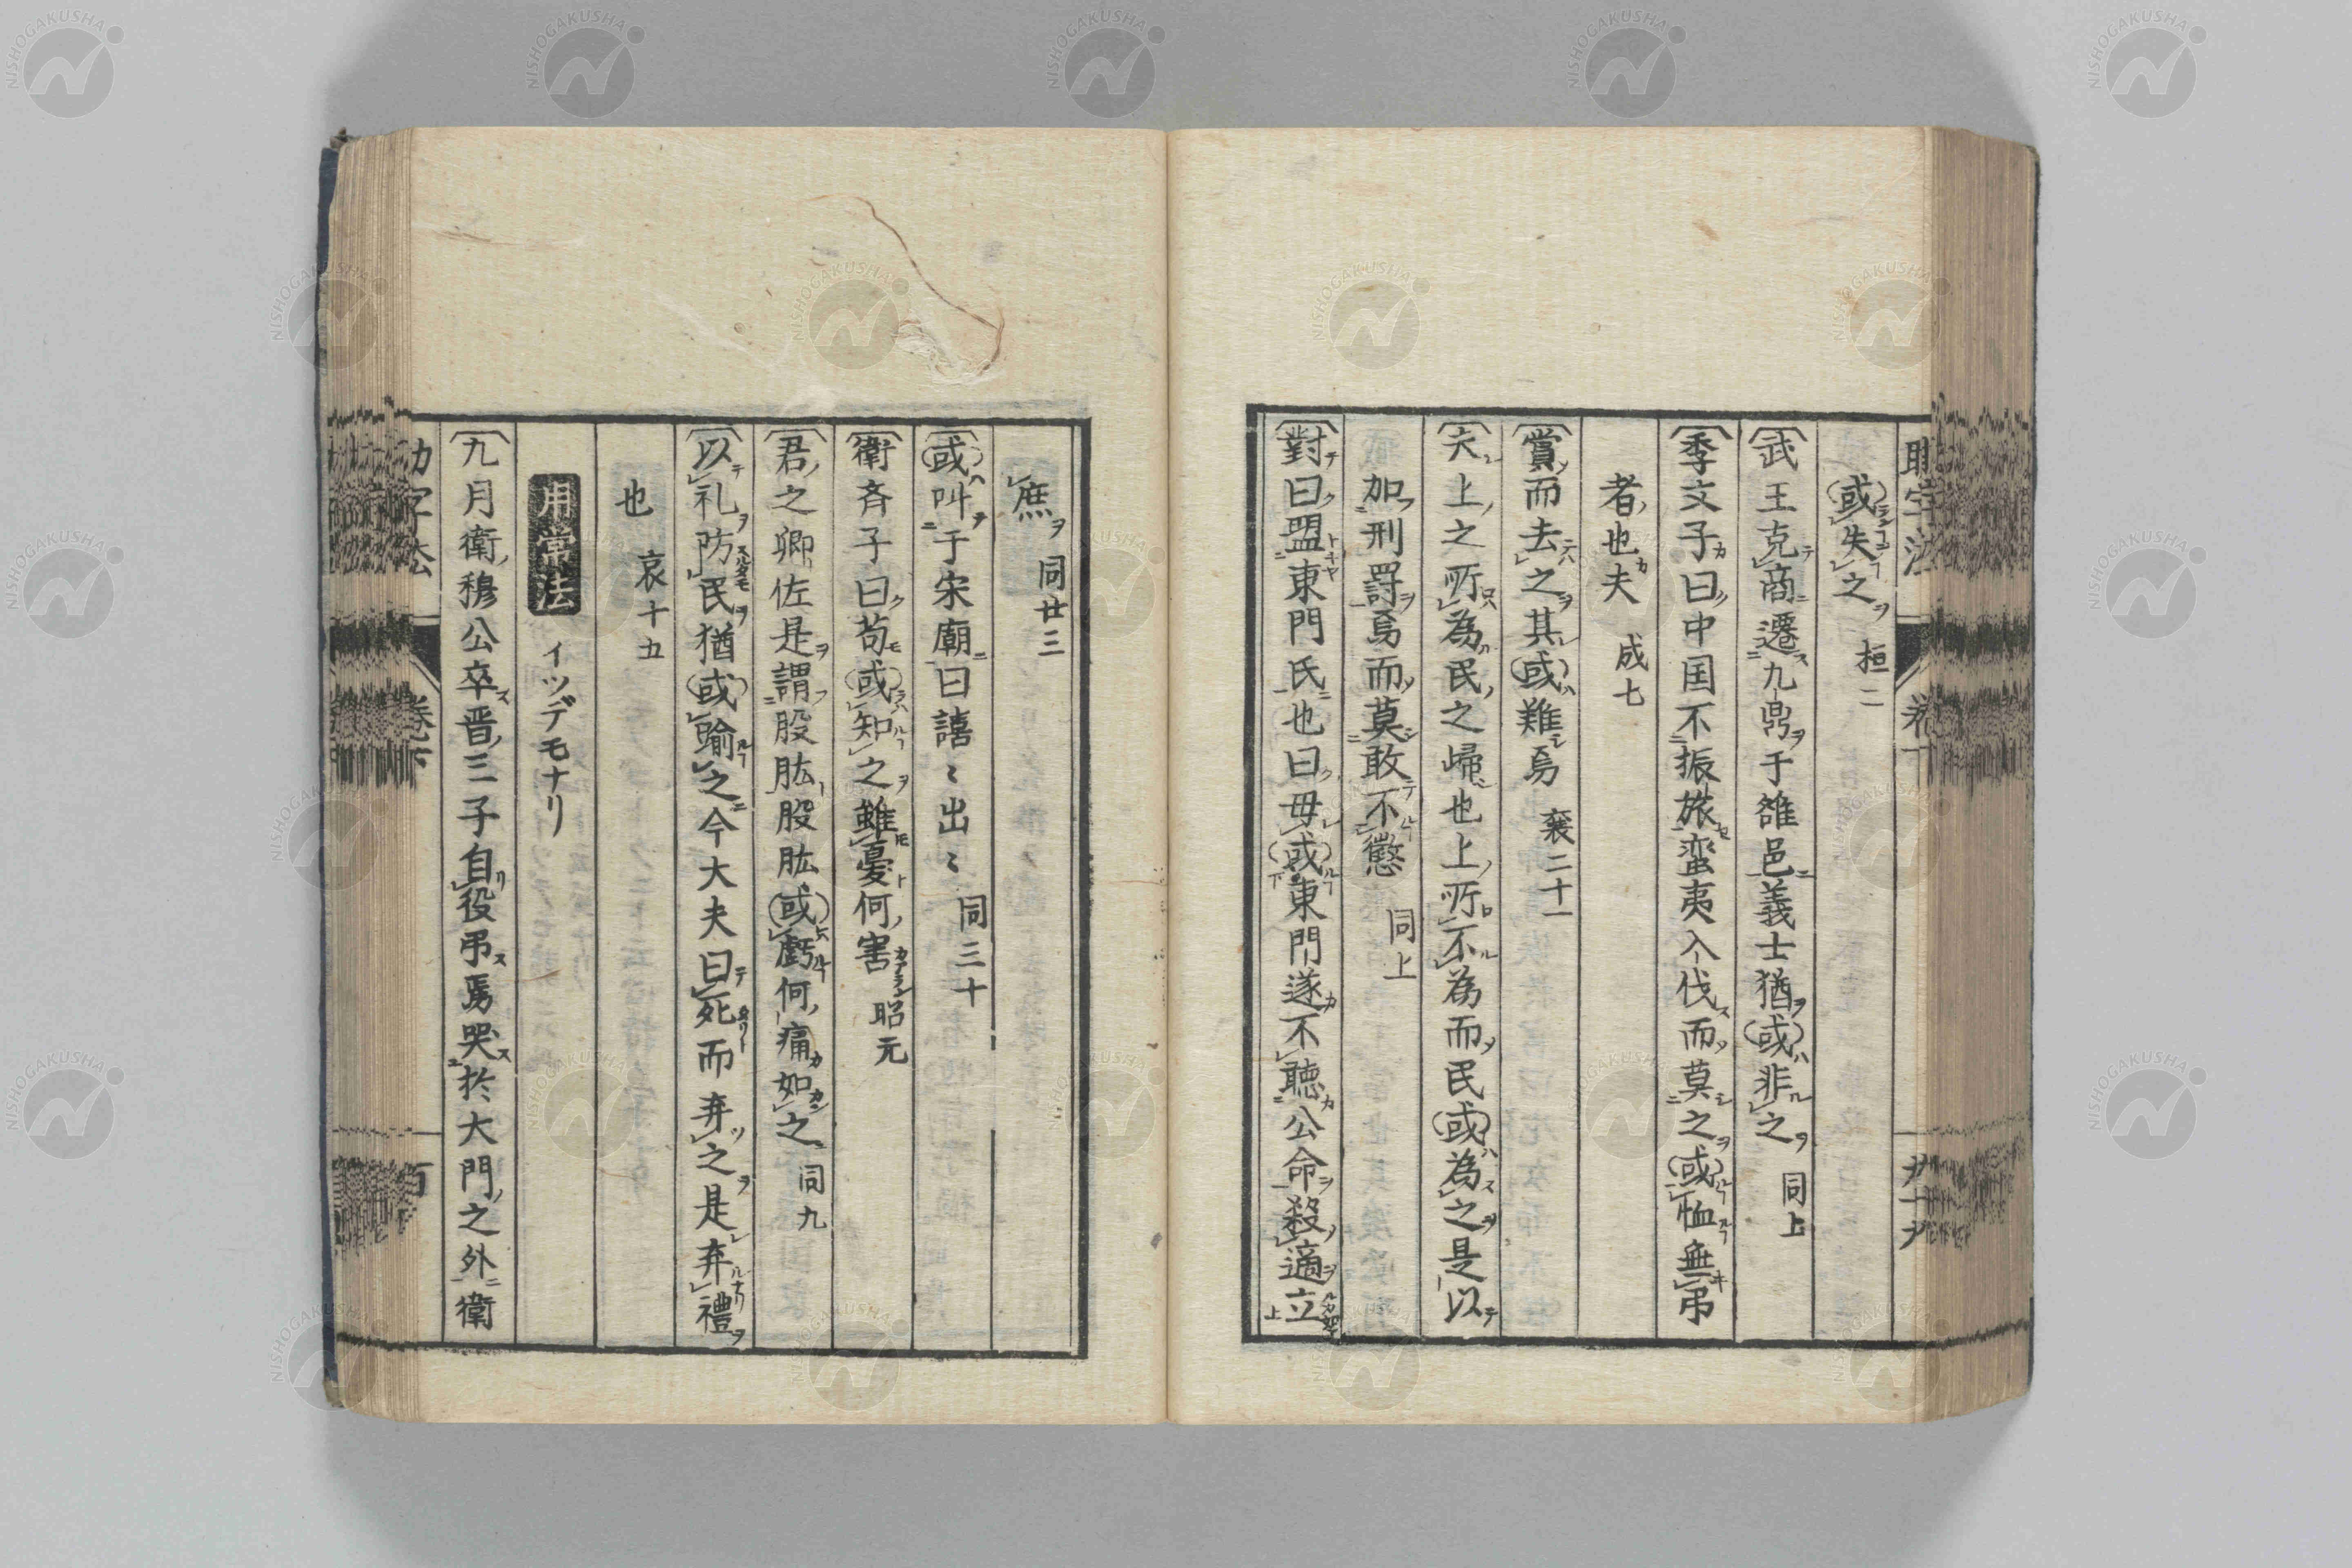 或失之 桓二
武王克商遷九鼎于雒邑義士猶或非之 同上
季文子曰中国不振旅蛮夷入伐而莫之或恤無弔
者也夫 成七
賞而去之其或難焉 襄二十一
夫上之所為民之歸也上所不為而民或為之是以
加刑罸焉而莫敢不懲 同上
對曰盟東門氏也曰毋或東門遂不聴公命殺適立
庶 同廿三
或叫于宋廟曰譆〻出〻 同三十
衛斉子曰苟或知之雖憂何害 昭元
君之卿佐是謂股肱股肱或虧何痛如之 同九
以礼防民猶或踰之今大夫曰死而弃之是弃禮
也 哀十五
用常法 イツデモナリ
九月衛穆公卒晋三子自役弔焉哭於大門之外衛
百
NISHOGAKUSHA